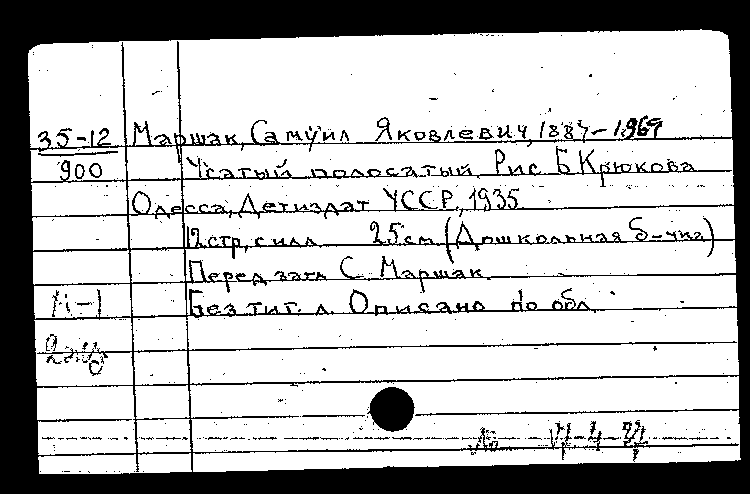 35-12 Маршак, Самуил Яковлевич, 1887-1969
900 Усатый полосатый. Рис Б Крюкова
Одесса, Детиздат УССР, 1935
12 стр, с илл 25 см (Дошкольная б-чка)
Перед загл С. Маршак.
Без тит. л. Описано по обл.
2 экз
№